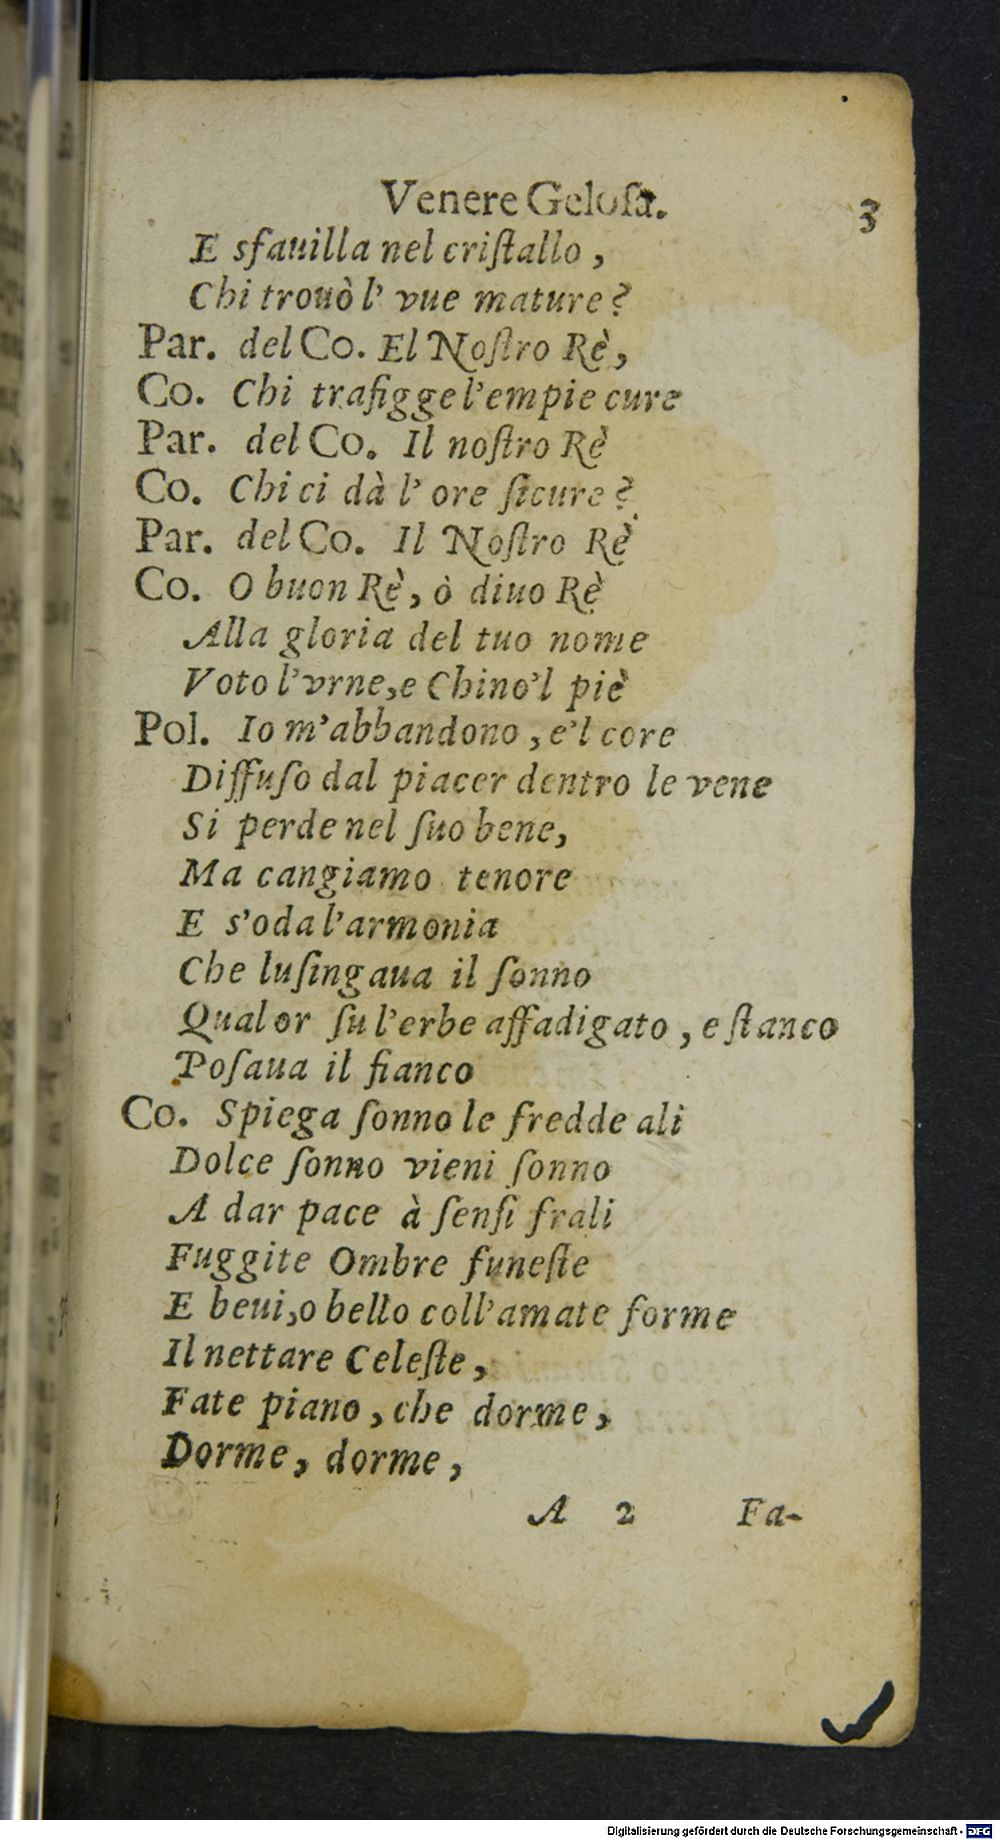 Venere Geloſa.
3
E sfauilla nel criſtallo ,
Chi trouò l' vue mature ?
Par. del Co. El Noſtro Rè,
Co. Chi trafigge l'empie cure
Par. del Co. Il noſtro Rè
Co. Chi ci dà l' ore ſicure ?
Par. del Co. Il Noſtro Rè
Co. O buon Rè, ò diuo Rè
Alla gloria del tuo nome
Voto l'vrne,e Chino'l piè
Pol. Io m'abbandono , e'l core
Diffuſo dal piacer dentro le vene
Si perde nel ſuo bene,
Ma cangiamo tenore
E s'oda l'armonia
Che luſingaua il ſonno
Qual or ſu l'erbe affadigato , e ſtanco
Poſaua il fianco
Co. Spiega ſonno le fredde ali
Dolce ſonno vieni ſonno
A dar pace à ſenſi frali
Fuggite Ombre funeſte
E beui,o bello coll'amate forme
Il nettare Celeſte ,
Fate piano , che dorme ,
Dorme , dorme ,
A 2 Fa-
Digitalisierung gefördert durch die Deutsche Forschungsgemeinschaft - DFG